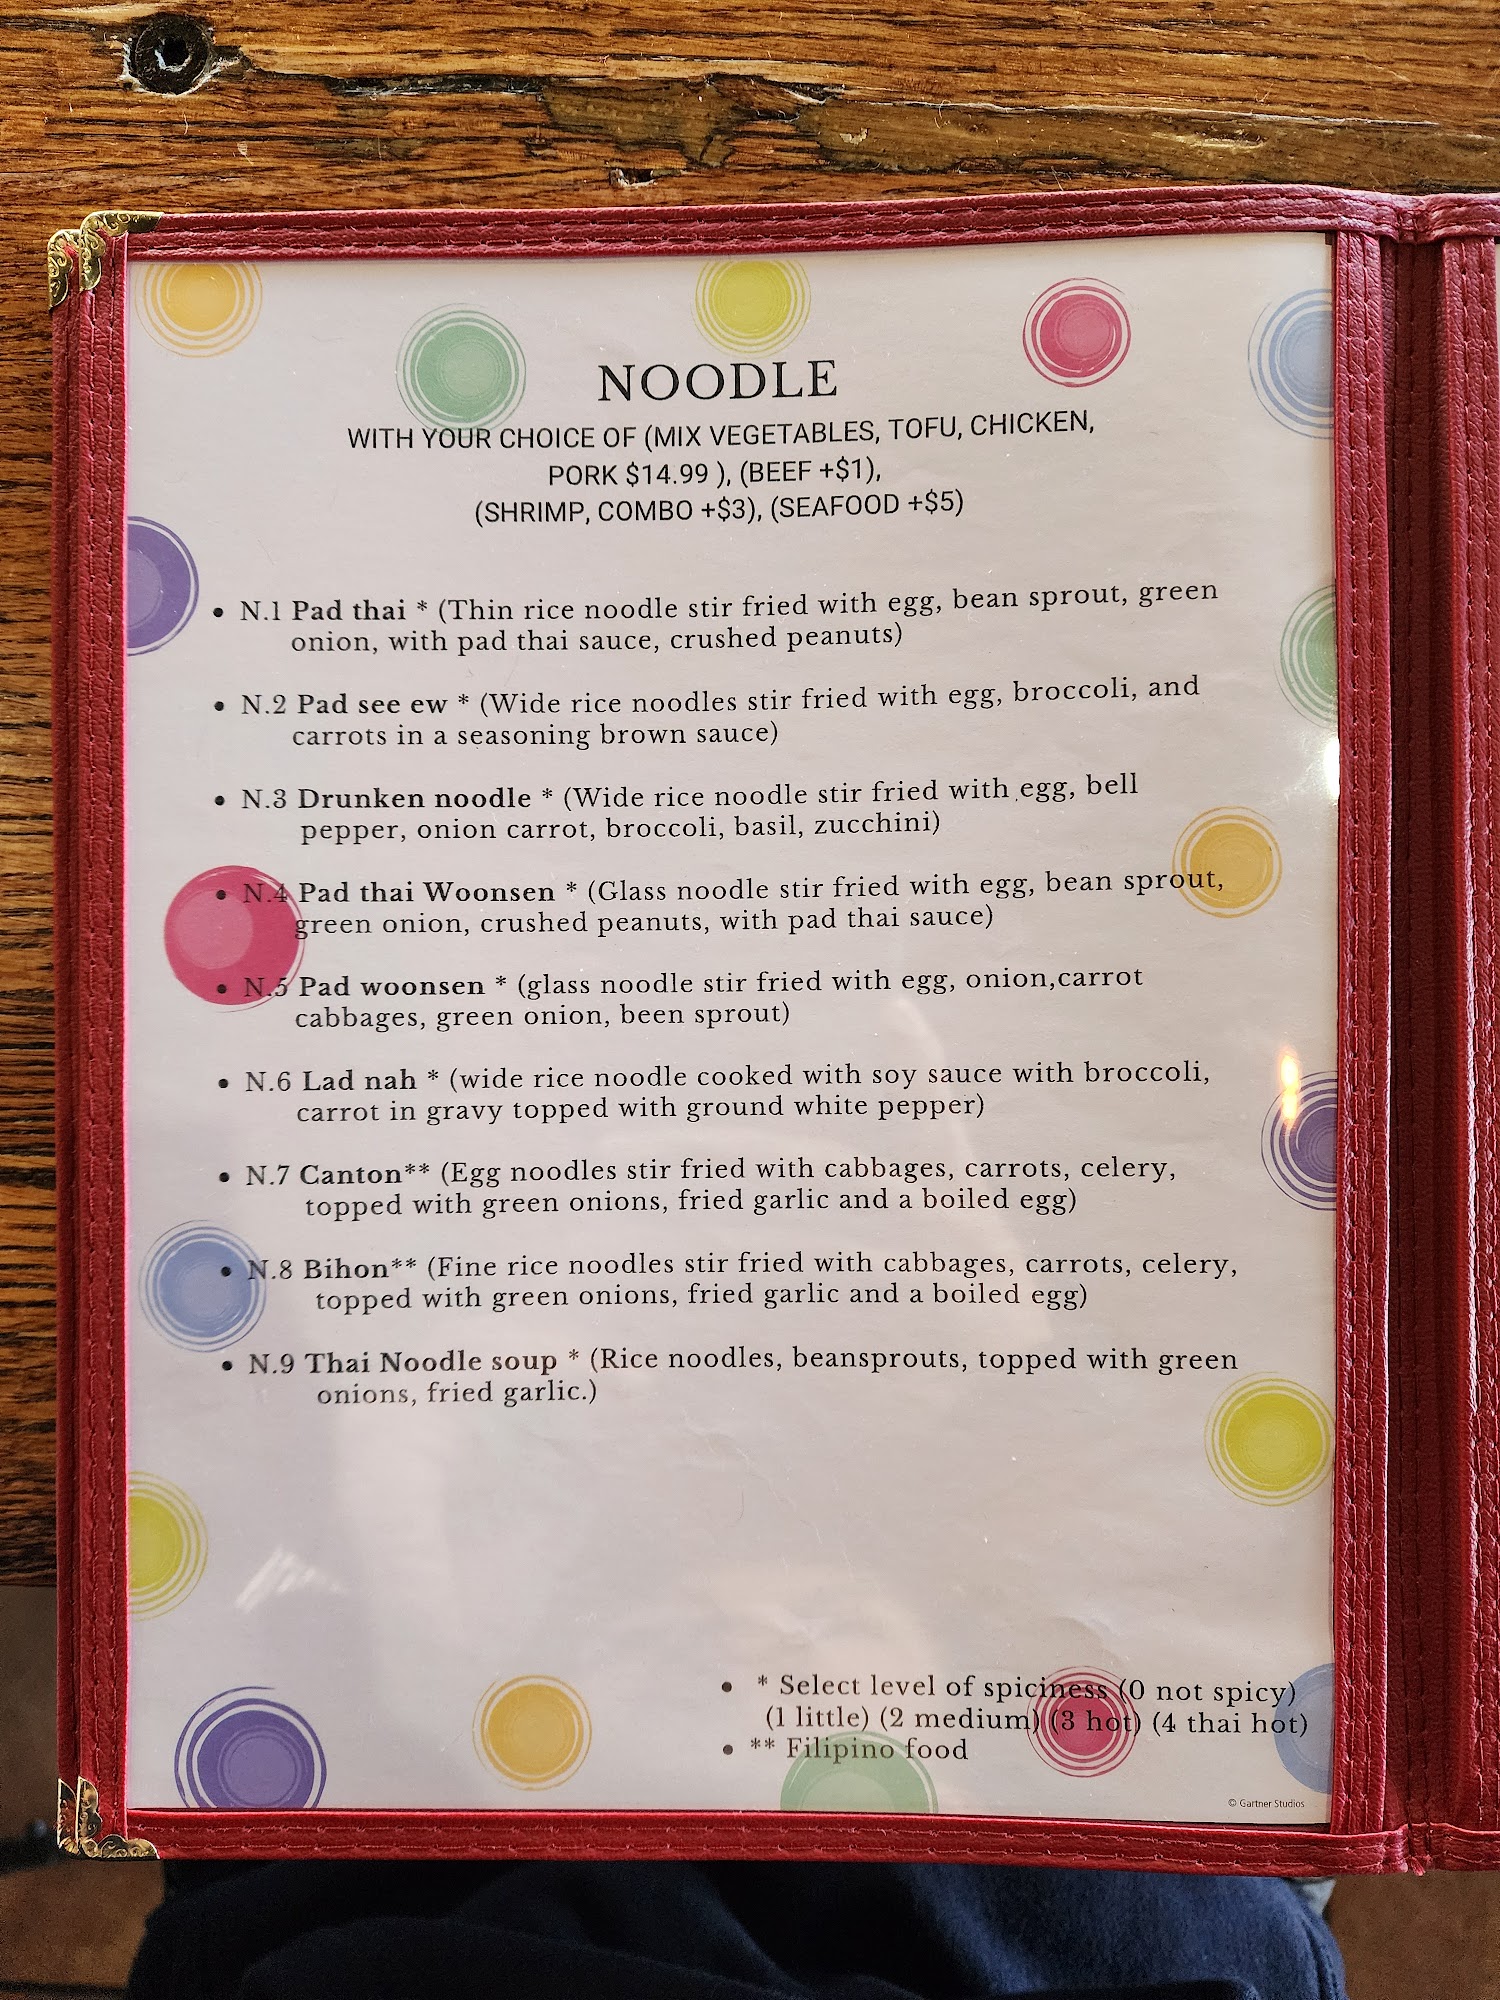 NOODLE
WITH YOUR CHOICE OF (MIX VEGETABLES, TOFU, CHICKEN,
PORK $14.99 ), (BEEF +$1),
(SHRIMP, COMBO +$3), (SEAFOOD +$5)
• N.1 Pad thai * (Thin rice noodle stir fried with egg, bean sprout, green
onion, with pad thai sauce, crushed peanuts)
• N.2 Pad see ew * (Wide rice noodles stir fried with egg, broccoli, and
carrots in a seasoning brown sauce)
• N.3 Drunken noodle * (Wide rice noodle stir fried with egg, bell
pepper, onion carrot, broccoli, basil, zucchini)
• N.4 Pad thai Woonsen * (Glass noodle stir fried with egg, bean sprout,
green onion, crushed peanuts, with pad thai sauce)
• N.5 Pad woonsen * (glass noodle stir fried with egg, onion,carrot
cabbages, green onion, been sprout)
• N.6 Lad nah * (wide rice noodle cooked with soy sauce with broccoli,
carrot in gravy topped with ground white pepper)
• N.7 Canton** (Egg noodles stir fried with cabbages, carrots, celery,
topped with green onions, fried garlic and a boiled egg)
• N.8 Bihon** (Fine rice noodles stir fried with cabbages, carrots, celery,
topped with green onions, fried garlic and a boiled egg)
• N.9 Thai Noodle soup * (Rice noodles, beansprouts, topped with green
onions, fried garlic.)
• * Select level of spiciness (0 not spicy)
(1 little) (2 medium) (3 hot) (4 thai hot)
• ** Filipino food
© Gartner Studios